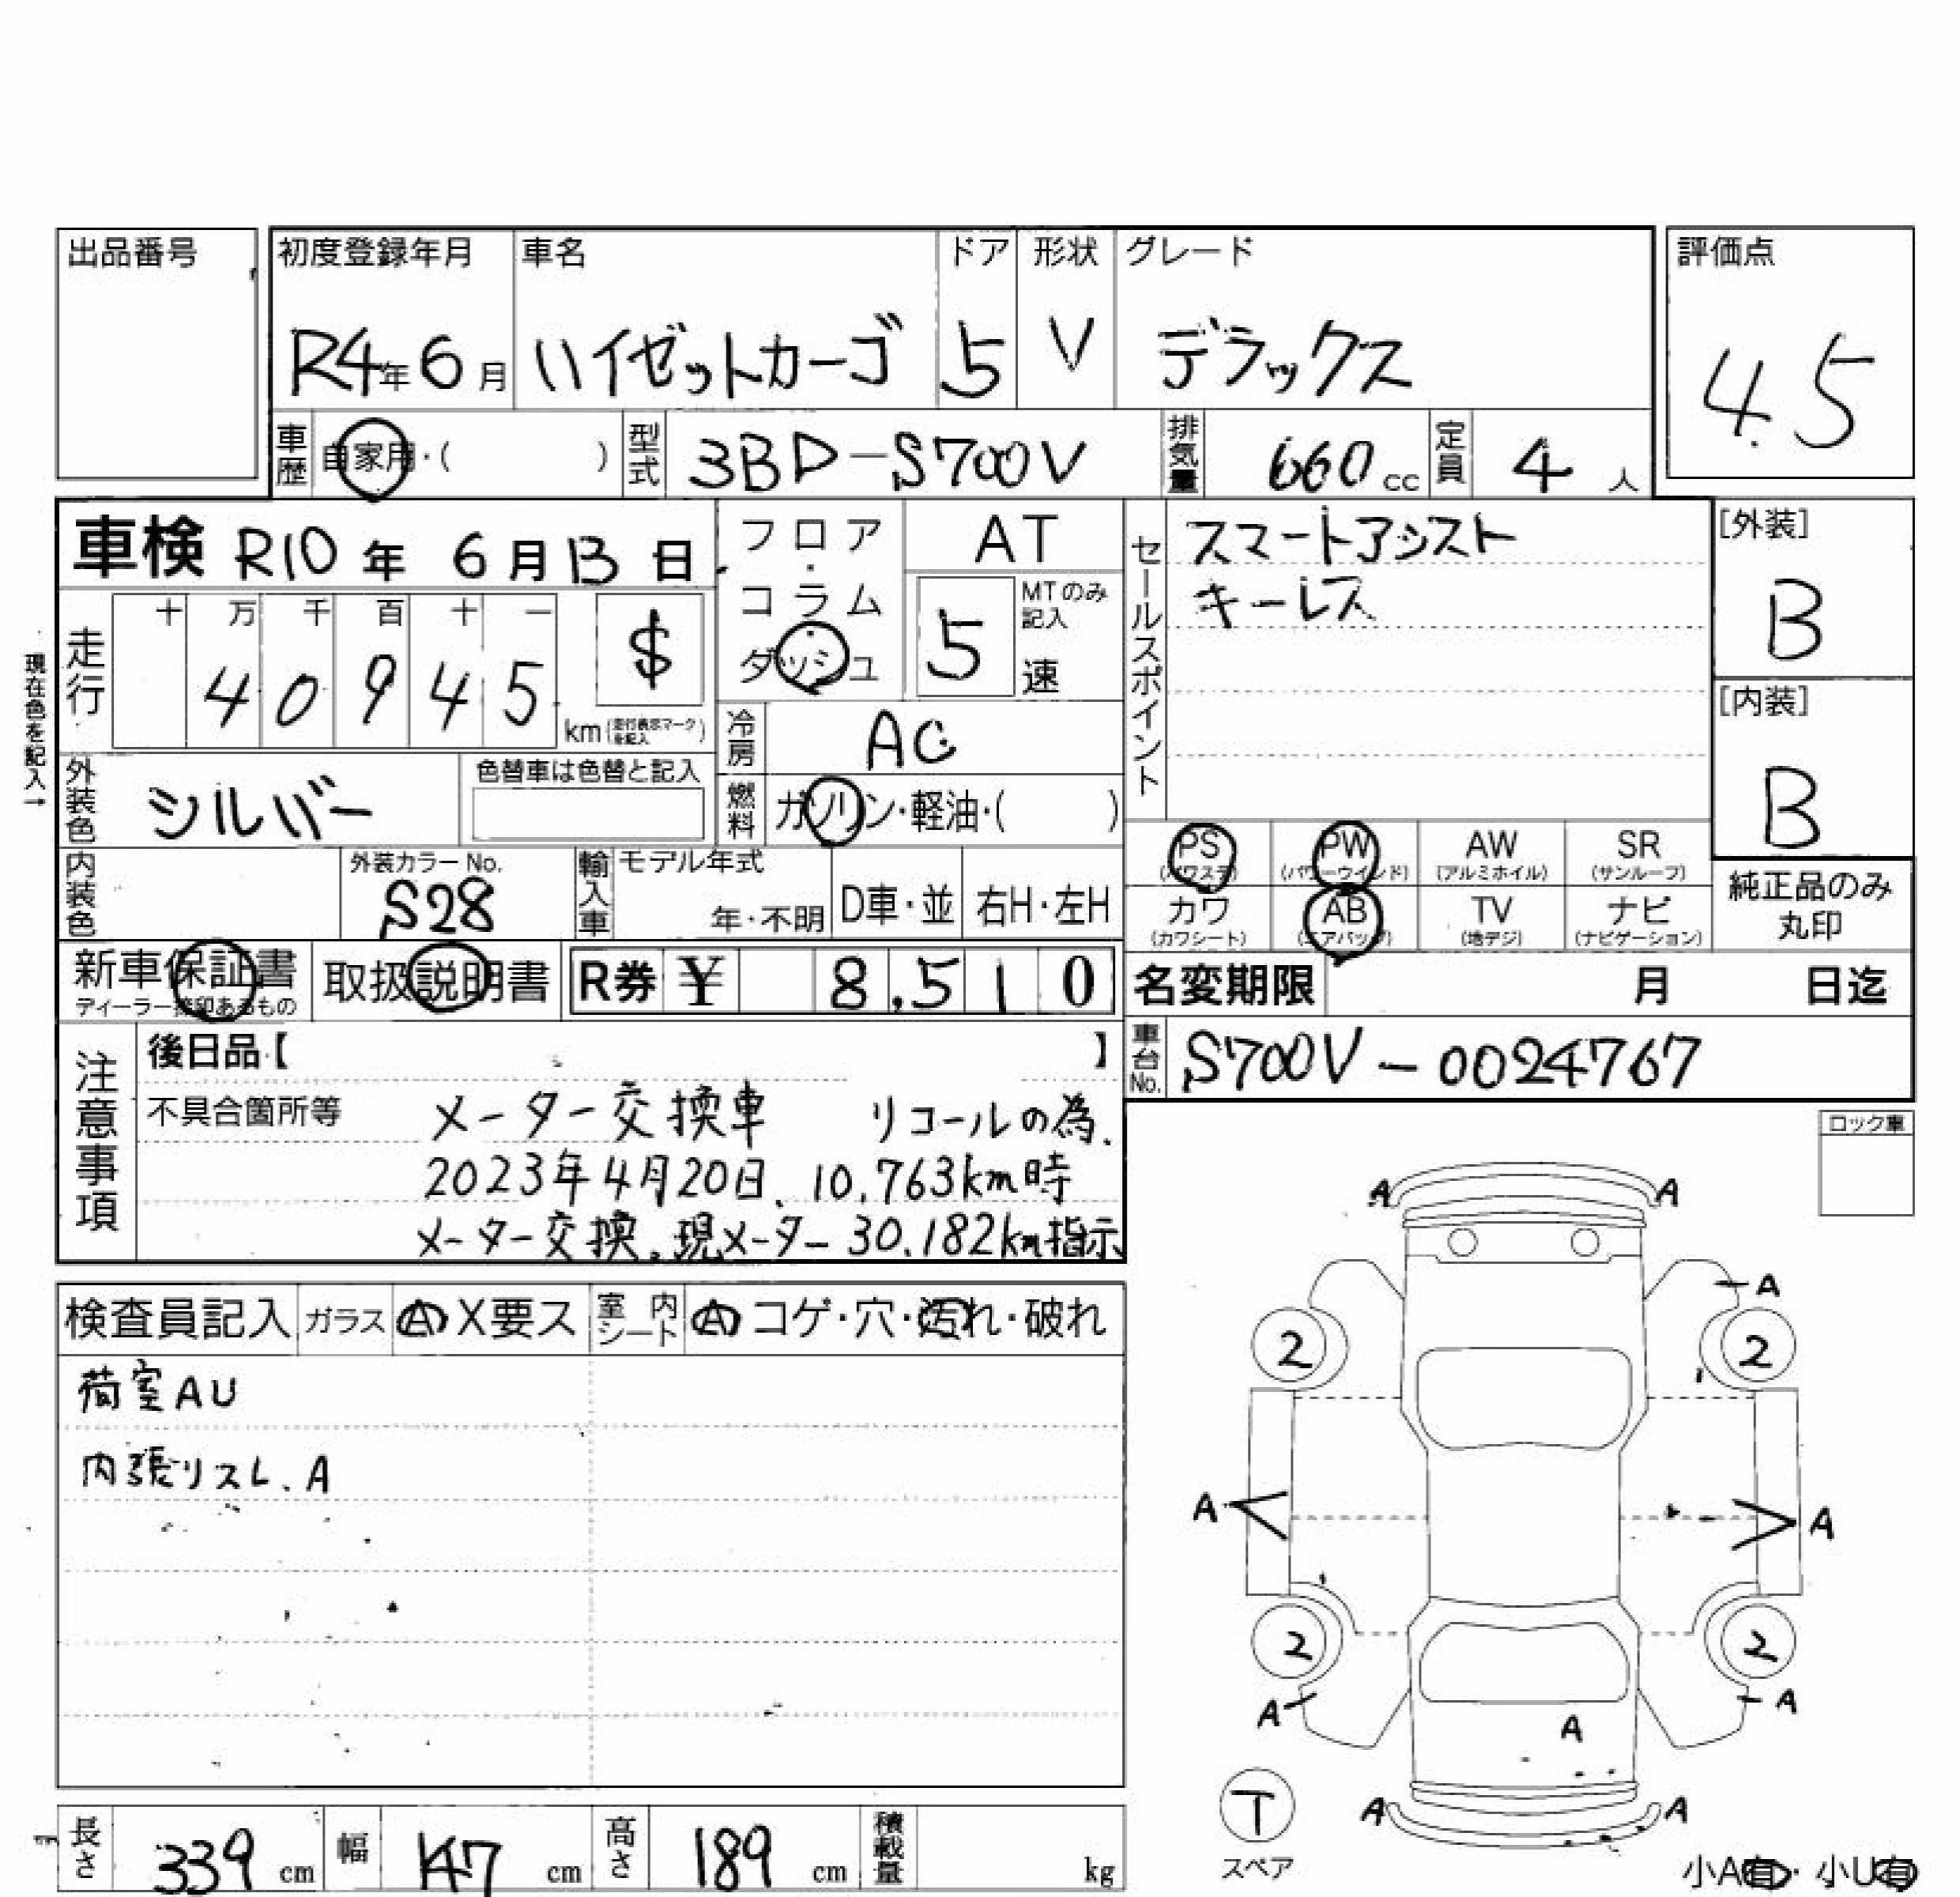 出品番号
初度登録年月 車名 ドア 形状 グレード 評価点
R4年6月 ハイゼットカーゴ 5 V デラックス 4.5
車歴 自家用・( ) 型式 3BD-S700V 排気量 660cc 定員 4人
車検 R10年 6月13日
フロア・コラム・ダッシュ AT
5 MTのみ記入 速
セールスポイント スマートアシスト
キーレス
[外装] B
[内装] B
現在色を記入→
走行 十 万 千 百 十 一
40945 km $ (走行表示マークを記入)
冷房 AC
外装色 シルバー 色替車は色替と記入
燃料 ガソリン・軽油・( )
内装色 外装カラーNo. S28
輸入車 モデル年式 年・不明 D車・並 右H・左H
PS (パワステ) PW (パワーウインド) AW (アルミホイル) SR (サンルーフ)
カワ (カワシート) AB (エアバッグ) TV (地デジ) ナビ (ナビゲーション)
純正品のみ丸印
新車保証書 ディーラー捺印あるもの 取扱説明書 R券 ¥ 8,510
名変期限 月 日迄
車台No. S700V-0024767
注意事項
後日品【 】
不具合箇所等 メーター交換車 リコールの為.
2023年4月20日、10,763km時
メーター交換。現メーター30,182km指示
ロック車
検査員記入 ガラス A X要ス 室内シート A コゲ・穴・汚れ・破れ
荷室AU
内張リスレ、A
A A
A
2 2
A A
2 2
A A
A
T
スペア
A A
長さ 339cm 幅 147cm 高さ 189cm 積載量 kg
小A有・小U有